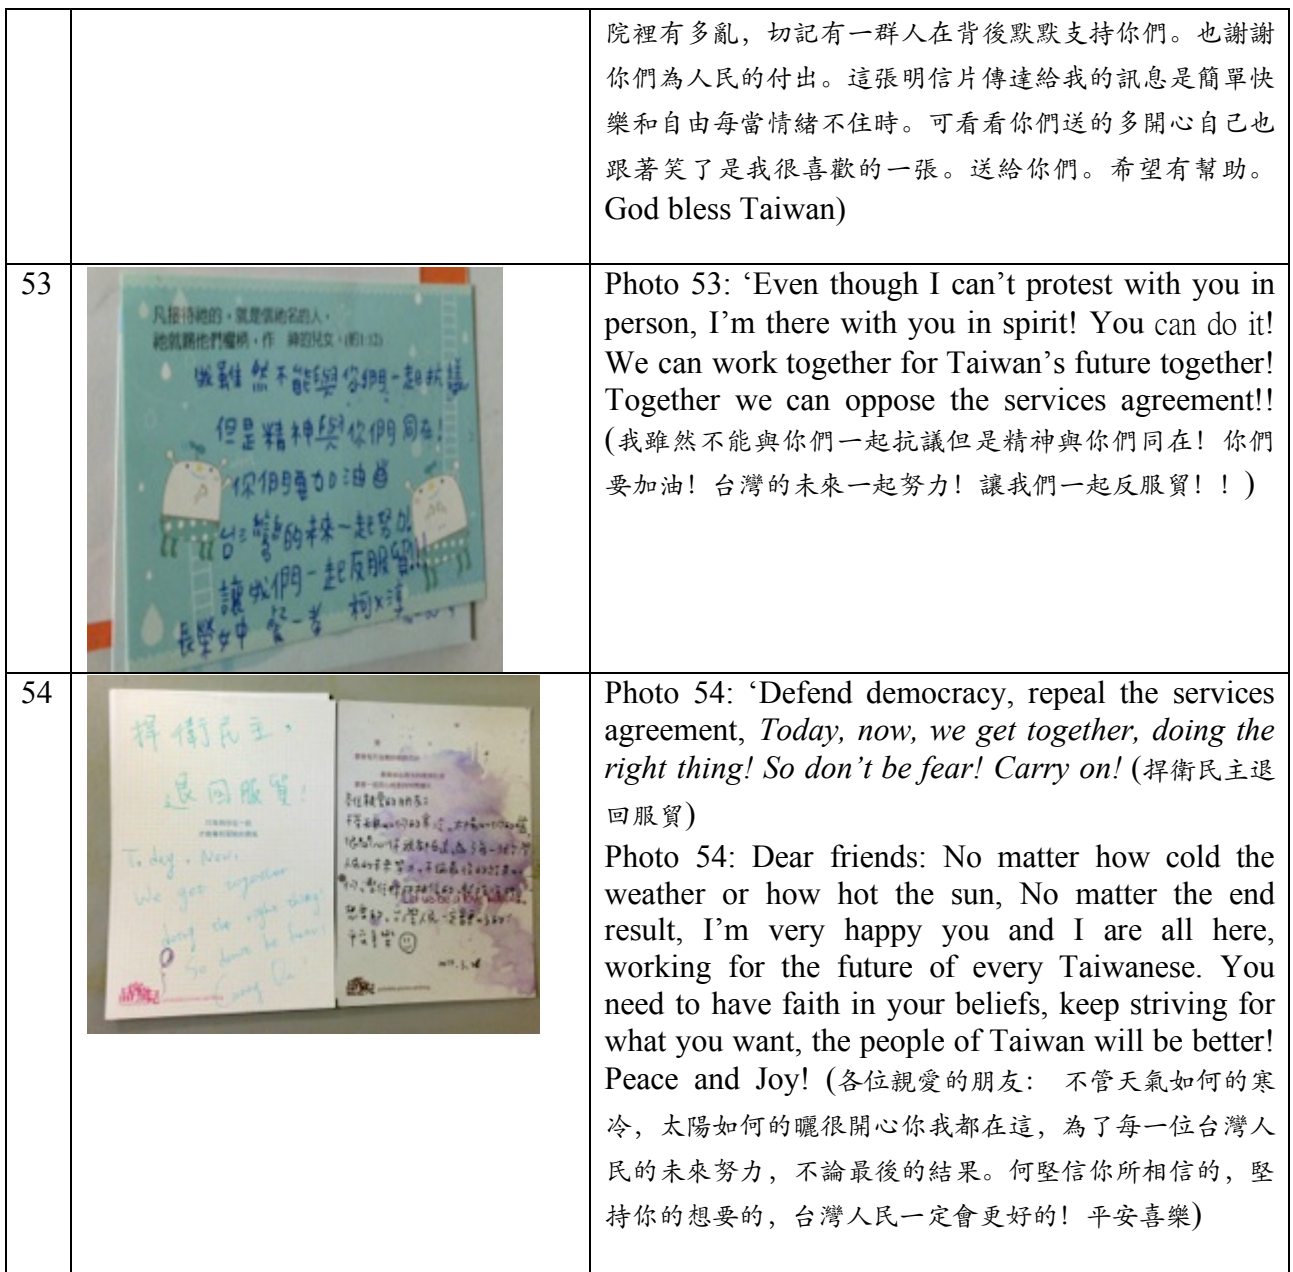 院裡有多亂，切記有一群人在背後默默支持你們。也謝謝
你們為人民的付出。這張明信片傳達給我的訊息是簡單快
樂和自由每當情緒不住時。可看看你們送的多開心自己也
跟著笑了是我很喜歡的一張。送給你們。希望有幫助。
God bless Taiwan)
53
凡接待祂的，就是信祂名的人，
祂就賜他們權柄，作 神的兒女。(約1:12)
我雖然不能與你們一起抗議
但是精神與你們同在!
你們要加油
台灣的未來一起努力!
讓我們一起反服貿!!!
長榮女中
Photo 53: ‘Even though I can’t protest with you in
person, I’m there with you in spirit! You can do it!
We can work together for Taiwan’s future together!
Together we can oppose the services agreement!!
(我雖然不能與你們一起抗議但是精神與你們同在！你們
要加油！台灣的未來一起努力！讓我們一起反服貿！！)
54
捍衛民主，
退回服貿!
Today, Now,
We get together
doing the right thing!
So don't be fear!
Carry On!
各位親愛的朋友:
平安喜樂
Photo 54: ‘Defend democracy, repeal the services
agreement, Today, now, we get together, doing the
right thing! So don’t be fear! Carry on! (捍衛民主退
回服貿)
Photo 54: Dear friends: No matter how cold the
weather or how hot the sun, No matter the end
result, I’m very happy you and I are all here,
working for the future of every Taiwanese. You
need to have faith in your beliefs, keep striving for
what you want, the people of Taiwan will be better!
Peace and Joy! (各位親愛的朋友： 不管天氣如何的寒
冷，太陽如何的曬很開心你我都在這，為了每一位台灣人
民的未來努力，不論最後的結果。何堅信你所相信的，堅
持你的想要的，台灣人民一定會更好的！平安喜樂)